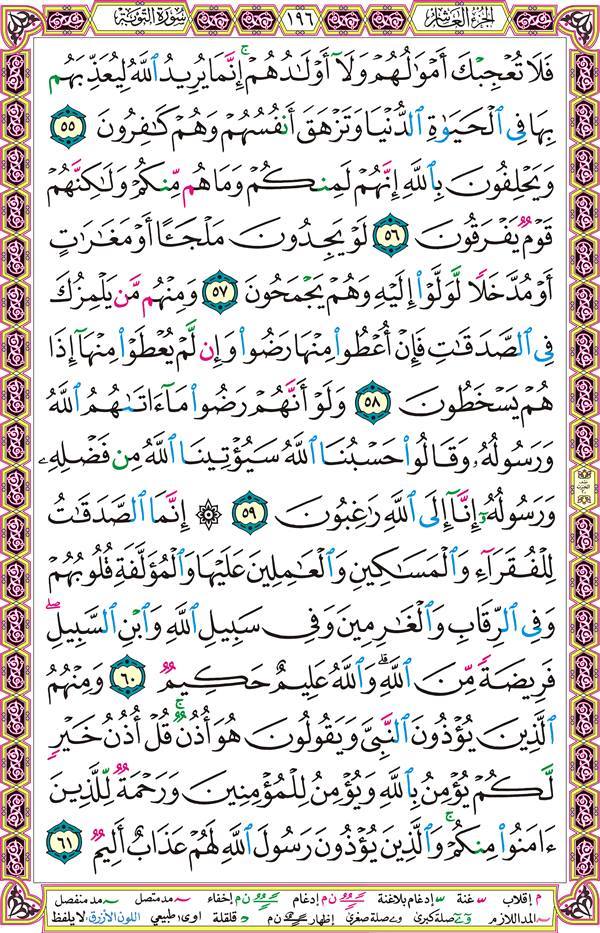 الجزء العاشر ١٩٦ سورة التوبة
فَلَا تُعْجِبْكَ أَمْوَٰلُهُمْ وَلَآ أَوْلَٰدُهُمْ ۚ إِنَّمَا يُرِيدُ ٱللَّهُ لِيُعَذِّبَهُم
بِهَا فِى ٱلْحَيَوٰةِ ٱلدُّنْيَا وَتَزْهَقَ أَنفُسُهُمْ وَهُمْ كَٰفِرُونَ ٥٥
وَيَحْلِفُونَ بِٱللَّهِ إِنَّهُمْ لَمِنكُمْ وَمَا هُم مِّنكُمْ وَلَٰكِنَّهُمْ
قَوْمٌ يَفْرَقُونَ ٥٦ لَوْ يَجِدُونَ مَلْجَـًٔا أَوْ مَغَٰرَٰتٍ
أَوْ مُدَّخَلًا لَّوَلَّوْا۟ إِلَيْهِ وَهُمْ يَجْمَحُونَ ٥٧ وَمِنْهُم مَّن يَلْمِزُكَ
فِى ٱلصَّدَقَٰتِ فَإِنْ أُعْطُوا۟ مِنْهَا رَضُوا۟ وَإِن لَّمْ يُعْطَوْا۟ مِنْهَآ إِذَا
هُمْ يَسْخَطُونَ ٥٨ وَلَوْ أَنَّهُمْ رَضُوا۟ مَآ ءَاتَىٰهُمُ ٱللَّهُ
وَرَسُولُهُۥ وَقَالُوا۟ حَسْبُنَا ٱللَّهُ سَيُؤْتِينَا ٱللَّهُ مِن فَضْلِهِۦ
وَرَسُولُهُۥٓ إِنَّآ إِلَى ٱللَّهِ رَٰغِبُونَ ٥٩ ۞ إِنَّمَا ٱلصَّدَقَٰتُ
لِلْفُقَرَآءِ وَٱلْمَسَٰكِينِ وَٱلْعَٰمِلِينَ عَلَيْهَا وَٱلْمُؤَلَّفَةِ قُلُوبُهُمْ
وَفِى ٱلرِّقَابِ وَٱلْغَٰرِمِينَ وَفِى سَبِيلِ ٱللَّهِ وَٱبْنِ ٱلسَّبِيلِ ۖ
فَرِيضَةً مِّنَ ٱللَّهِ ۗ وَٱللَّهُ عَلِيمٌ حَكِيمٌ ٦٠ وَمِنْهُمُ
ٱلَّذِينَ يُؤْذُونَ ٱلنَّبِىَّ وَيَقُولُونَ هُوَ أُذُنٌ ۚ قُلْ أُذُنُ خَيْرٍ
لَّكُمْ يُؤْمِنُ بِٱللَّهِ وَيُؤْمِنُ لِلْمُؤْمِنِينَ وَرَحْمَةٌ لِّلَّذِينَ
ءَامَنُوا۟ مِنكُمْ ۚ وَٱلَّذِينَ يُؤْذُونَ رَسُولَ ٱللَّهِ لَهُمْ عَذَابٌ أَلِيمٌ ٦١
م إقلاب س غنة س إدغام بلاغنة ن م إدغام ن م إخفاء مد متصل مد منفصل
المد اللازم صلة كبرى صلة صغرى إظهار ن م قلقلة اوى طبيعي اللون الأزرق لا يلفظ